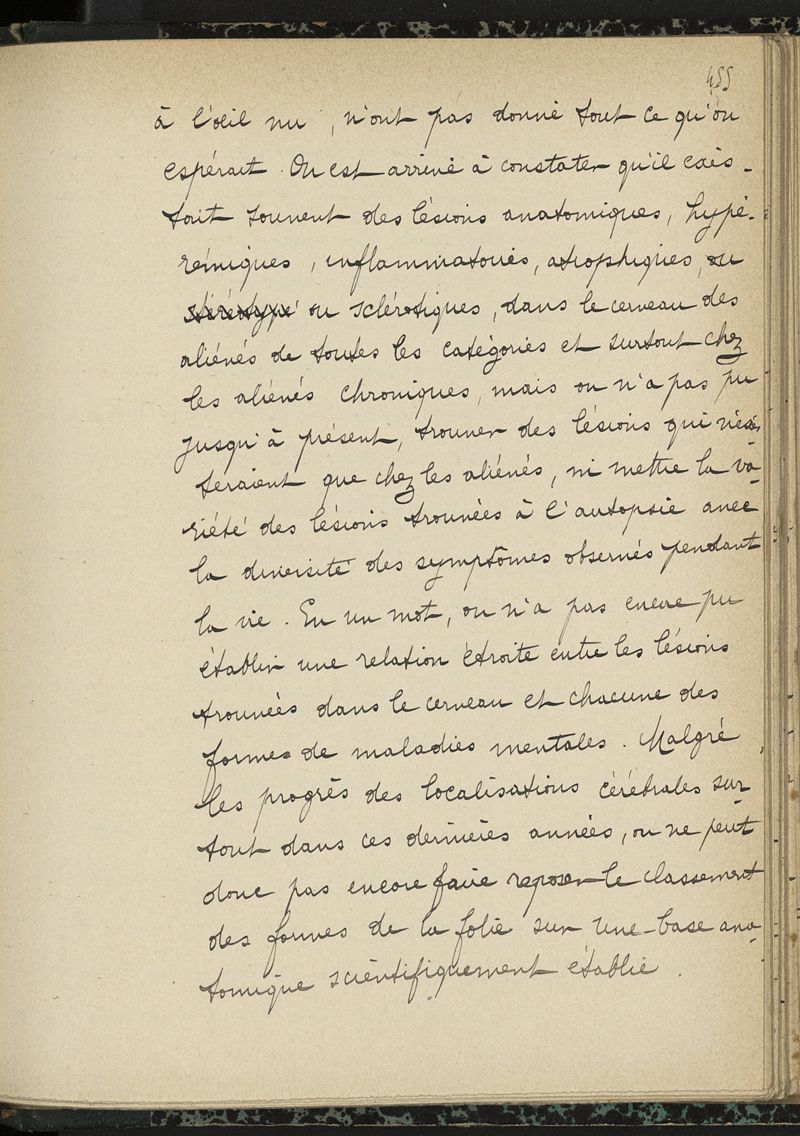 455
à l'œil nu, n'ont pas donné tout ce qu'on
espérait. On est arrivé à constater qu'il exis-
tait souvent des lésions anatomiques, hypé-
rémiques, inflammatoires, atrophiques, ou
ou sclérotiques, dans le cerveau des
aliénés de toutes les catégories et surtout chez
les aliénés chroniques, mais on n'a pas pu
jusqu'à présent, trouver des lésions qui n'exis-
teraient que chez les aliénés, ni mettre la va-
riété des lésions trouvées à l'autopsie avec
la diversité des symptômes observés pendant
la vie. En un mot, on n'a pas encore pu
établir une relation étroite entre les lésions
trouvées dans le cerveau et chacune des
formes de maladies mentales. Malgré
les progrès des localisations cérébrales sur-
tout dans ces dernières années, on ne peut
donc pas encore faire reposer le classement
des formes de la folie sur une base ana-
tomique scientifiquement établie.